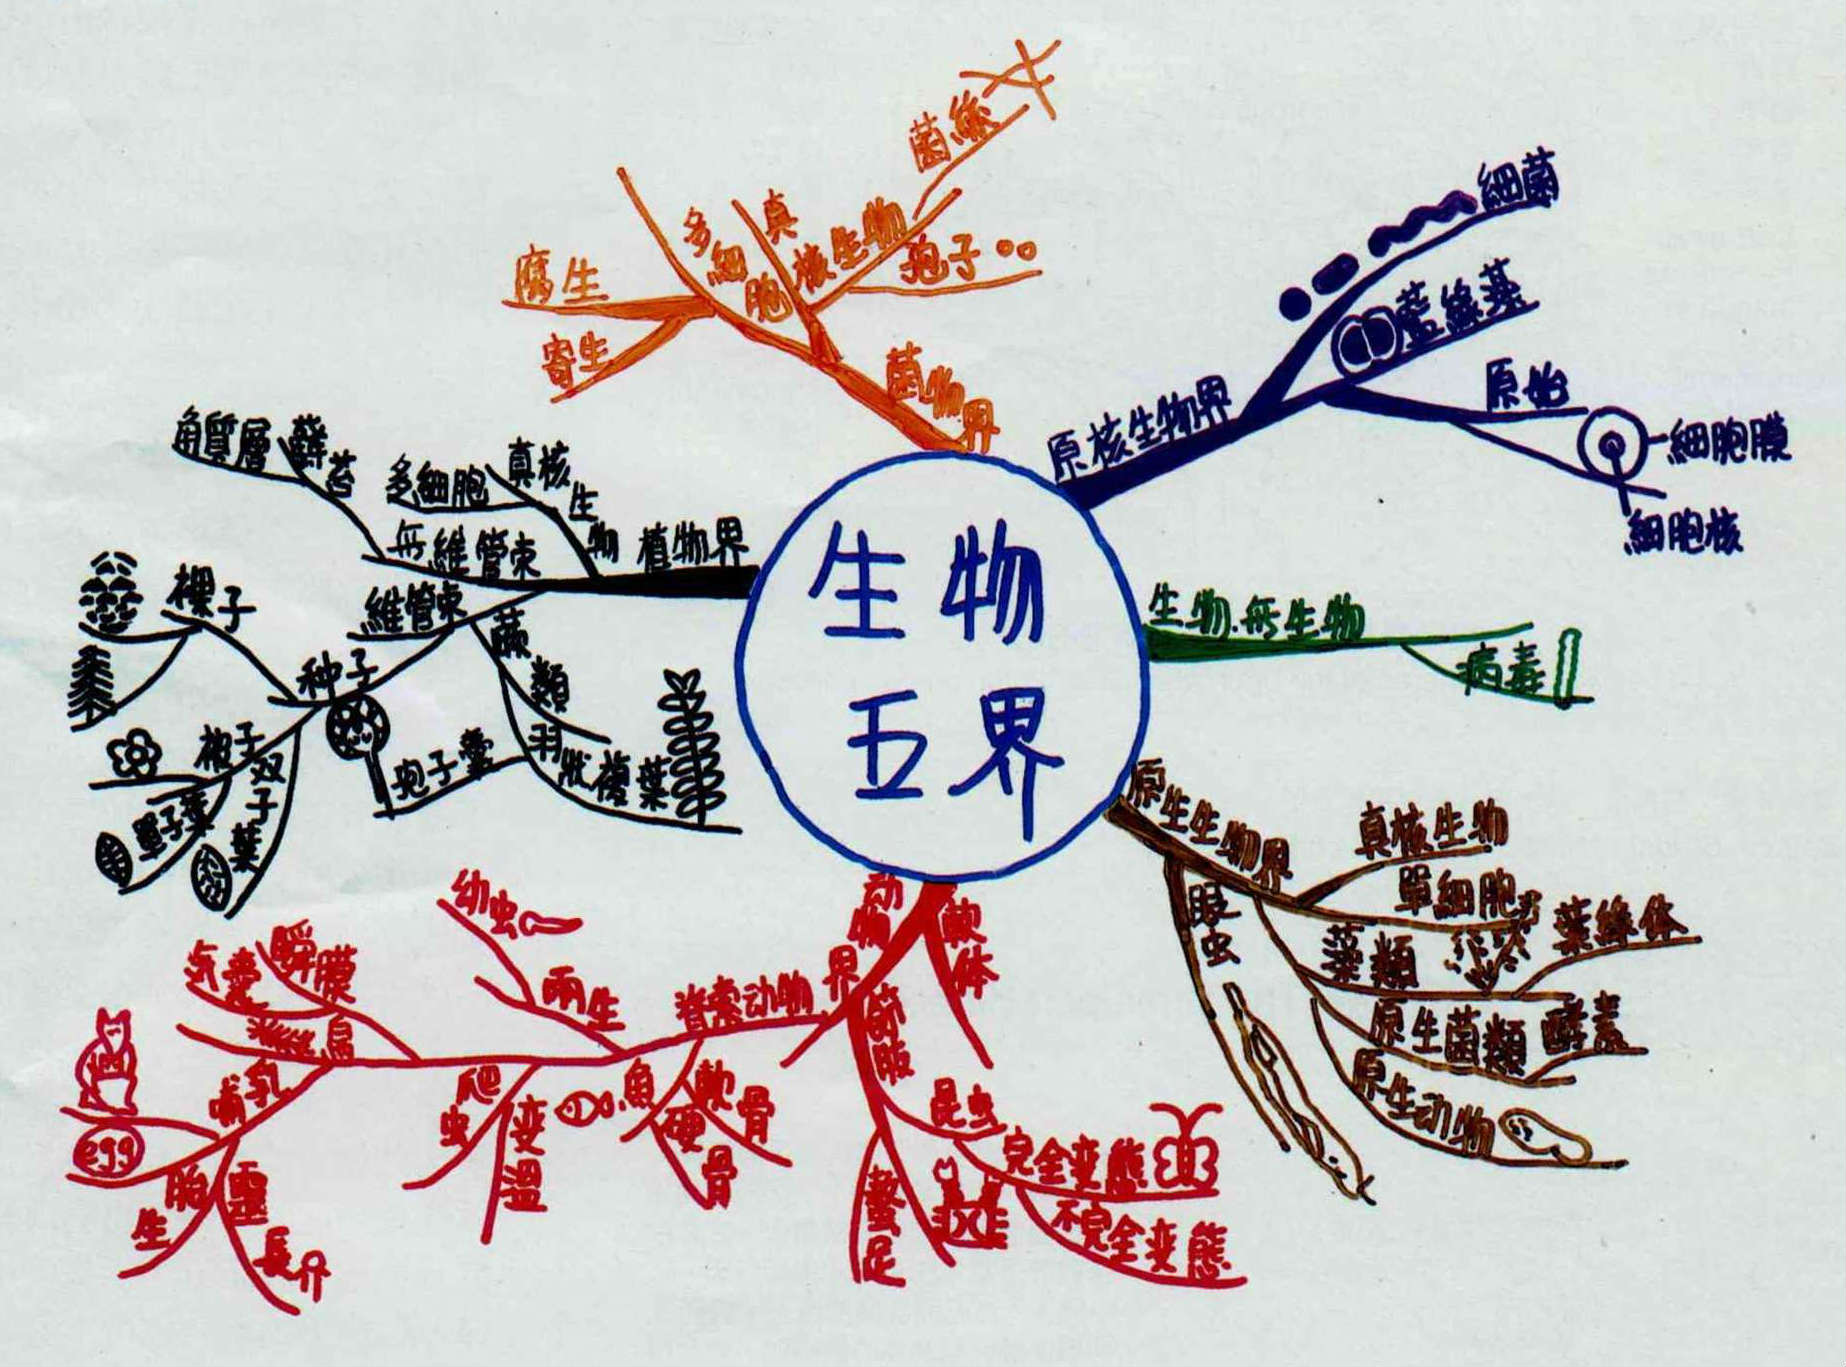 生物
五界
原核生物界
細菌
藍綠藻
原始
細胞膜
細胞核
生物.無生物
病毒
原生生物界
真核生物
單細胞
藻類
葉綠体
原生菌類
酵素
原生动物
眼虫
动物界
軟体
節肢
昆虫
完全变態
不完全变態
螯足
脊索动物
魚
軟骨
硬骨
兩生
幼虫
爬虫
变溫
瞬膜
気囊
哺乳
egg
胎生
靈長
植物界
真核生物
多細胞
無維管束
蘚苔
角質層
維管束
蕨類
羽狀複葉
孢子囊
种子
裸子
被子
双子葉
單子葉
菌物界
真核生物
菌絲
孢子
多細胞
腐生
寄生